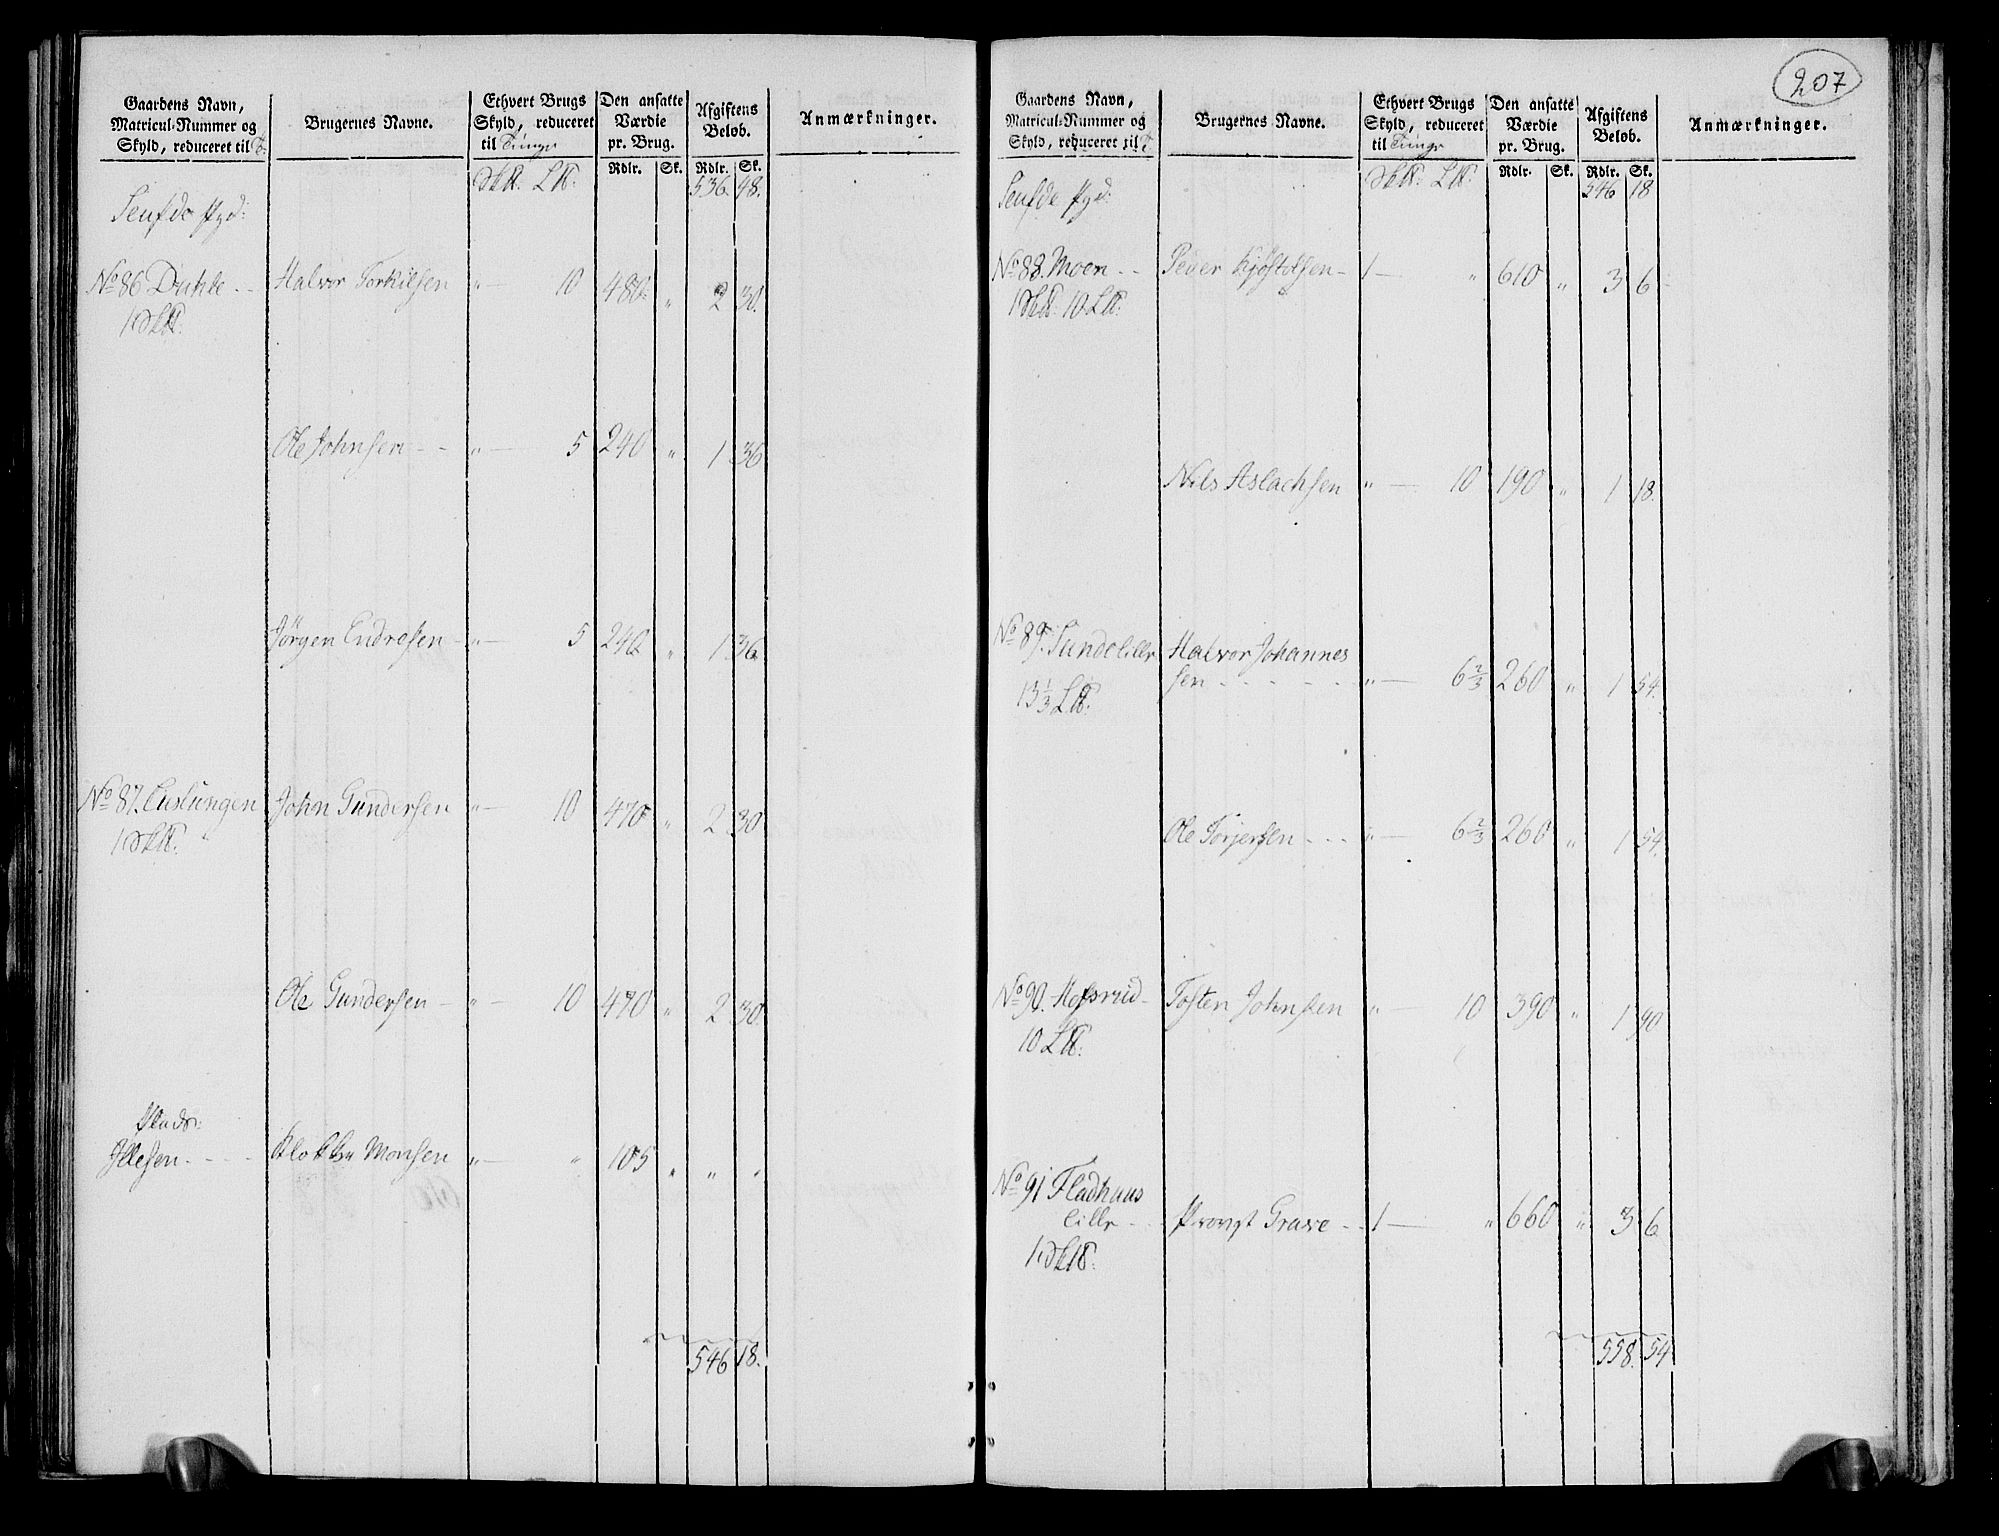 207
Gaardens Navn,
Matricul-Nummer og
Skyld, reduceret til T.
Brugernes Navne.
Ethvert Brugs
Skyld, reduceret
til Tunge
Den ansatte
Værdie
pr. Brug.
Afgiftens
Beløb.
Anmærkninger.
Rdlr. Sk. Rdlr. Sk.
Sk℔: L℔: 536. 48.
No 86 Duhle - - Halvor Torkilsen " — 10 480 " 2 30.
1 Sk℔:
Ole Johnsen - - " — 5 240 " 1 36
Jörgen Endresen - " — 5 240 " 1 36
No 87. Luslungen John Gundersen " — 10 470 " 2 30
1 Sk℔:
Ole Gundersen - " — 10 470 " 2 30.
Plads:
Illesen - - - - Monsen " — " 105 " " "
546 18.
Gaardens Navn,
Matricul-Nummer og
Skyld, reduceret til T
Brugernes Navne.
Ethvert Brugs
Skyld, reduceret
til Tunge
Den ansatte
Værdie
pr. Brug.
Afgiftens
Beløb.
Anmærkninger.
Rdlr. Sk. Rdlr. Sk.
Sk℔: L℔: 546 18
No 88. Moen - - Peder Kjöstolsen - 1 — " 610 " 3 6
1 Sk℔: 10 L℔:
Nils Aslachsen " — 10 190 " 1 18.
No 89. Sundelille Halvor Johannes
sen - - - - - " — 6 2/3 260 " 1 54.
13 1/3 L℔:
Ole Torjersen - - - " — 6 2/3 260 " 1 54.
No 90. Hofsrud - Tosten Johnsen " — 10 390 " 1 90
10 L℔:
No 91 Fladhuus
lille - - Provst Grave - - 1 — " 660 " 3 6
1 Sk℔:
558. 54